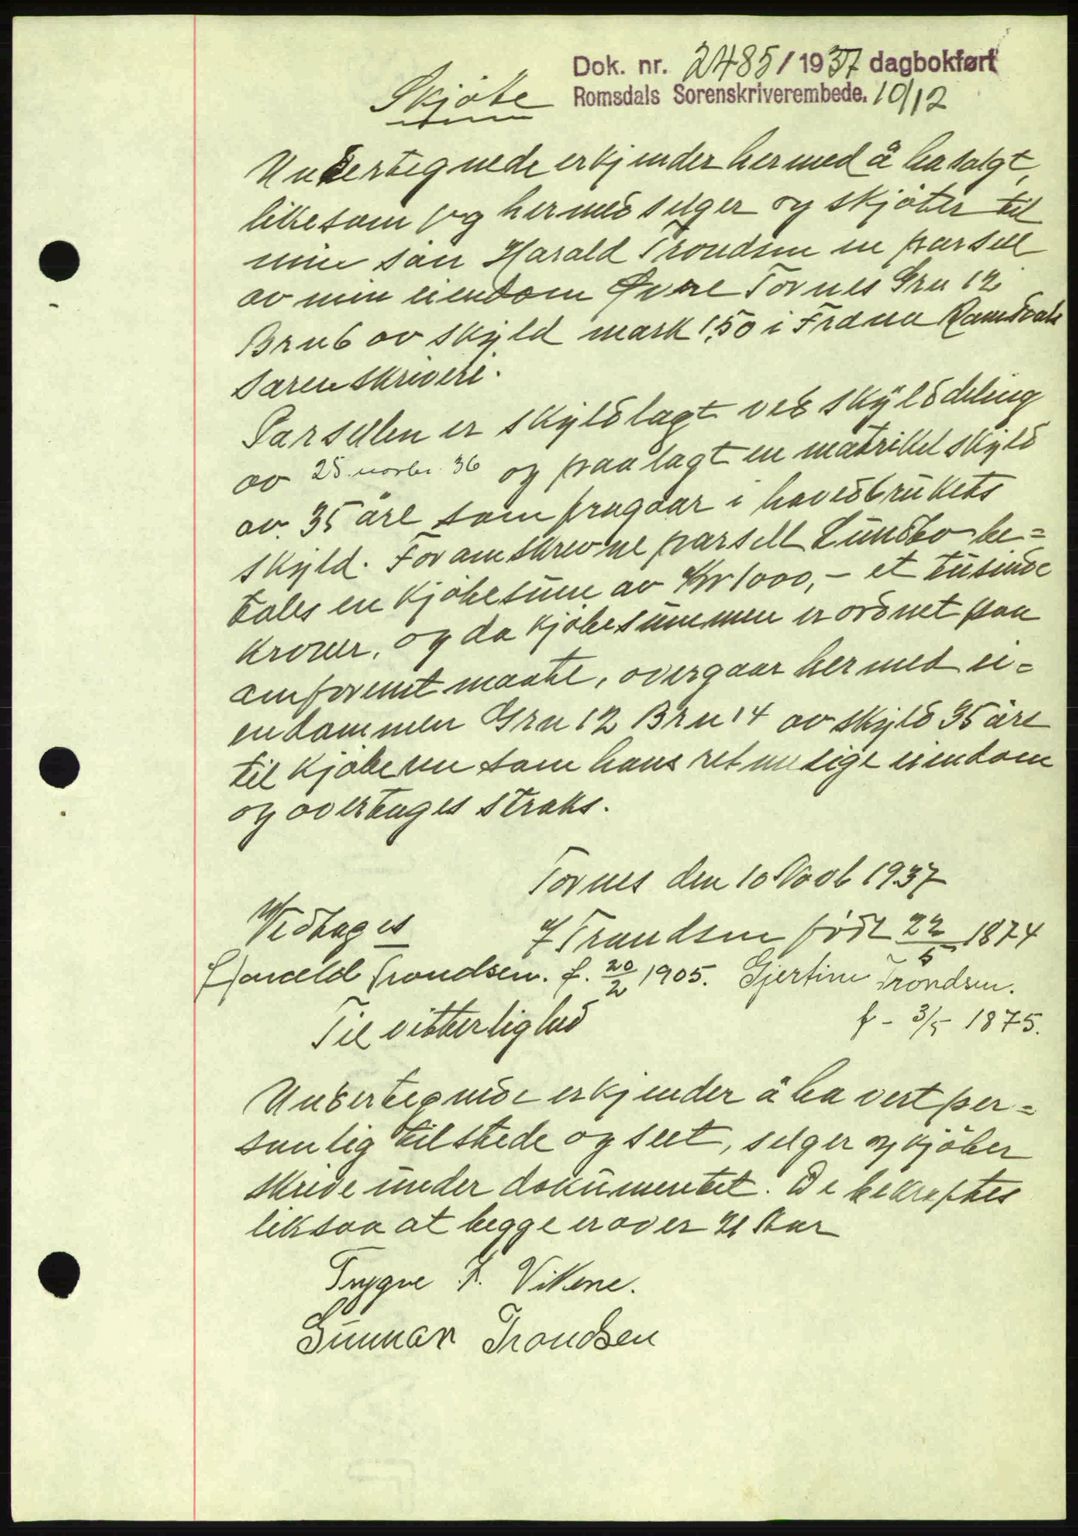 Dok. nr. 2485/1937 dagbokført
Romsdals Sorenskriverembede. 10/12
Skjøte
Undertegnede erkjender hermed å ha solgt,
likesom jeg hermed selger og skjøter til
min søn Harald Trondsen en parsell
av min eiendom Øvre Tornes Gru 12
Bru 6 av skyld mark 1,50 i Fræna Romsdals
sorenskriveri.
Parsellen er skyldlagt ved skylddeling
av 25 novbr. 36 og paalagt en matrikelskyld
av 35 øre som fragaar i hovedbrukets
skyld. For omskrevne parsell Lundbo be=
tales en kjøbesum av Kr 1000,- et tusinde
kroner, og da kjøbesummen er ordnet paa
omforent maate, overgaar hermed ei=
endommen Gru 12 Bru 14 av skyld 35 øre
til kjøberen som hans retmesige eiendom
og overtages straks.
Tornes den 10 Novb 1937
Vedtages
T Trondsen født 22/5 1874
Harald Trondsen. f. 20/2 1905. Gjertine Trondsen.
Til vitterlighed
f - 3/5 1875.
Undertegnede erkjender å ha vert per=
sonlig tilstede og seet, selger og kjøber
skrive under dokumentet. De bekreftes
liksaa at begge er over 21 Aar
Trygve K. Vikene.
Gunnar Trondsen